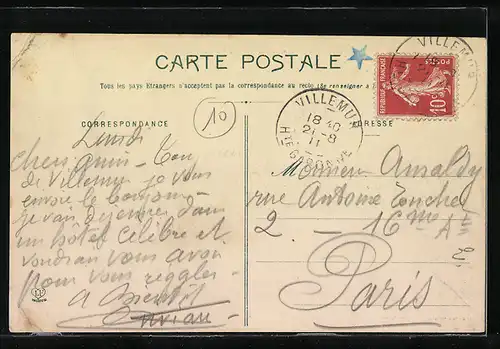 CARTE POSTALE
Tous les pays Etrangers n'acceptent pas la correspondance au recto (Se renseigner à
CORRESPONDANCE
ADRESSE
10
VILLEMUR
18 40
21-8
11
HTE GARONNE
VILLEMUR
POSTES
REPUBLIQUE FRANÇAISE
10c
Lundi
chers amis
de Villemur je vous
envoie le bonjour
je vais dejeuner dans
un hôtel célèbre et
voudrai vous avoir
pour vous
A Bientôt
Monsieur Ansaldy
rue Antoine
2 - 16me
Paris